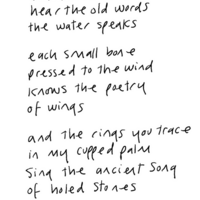 hear the old words
the water speaks
each small bone
pressed to the wind
knows the poetry
of wings
and the rings you trace
in my cupped palm
sing the ancient song
of holed stones